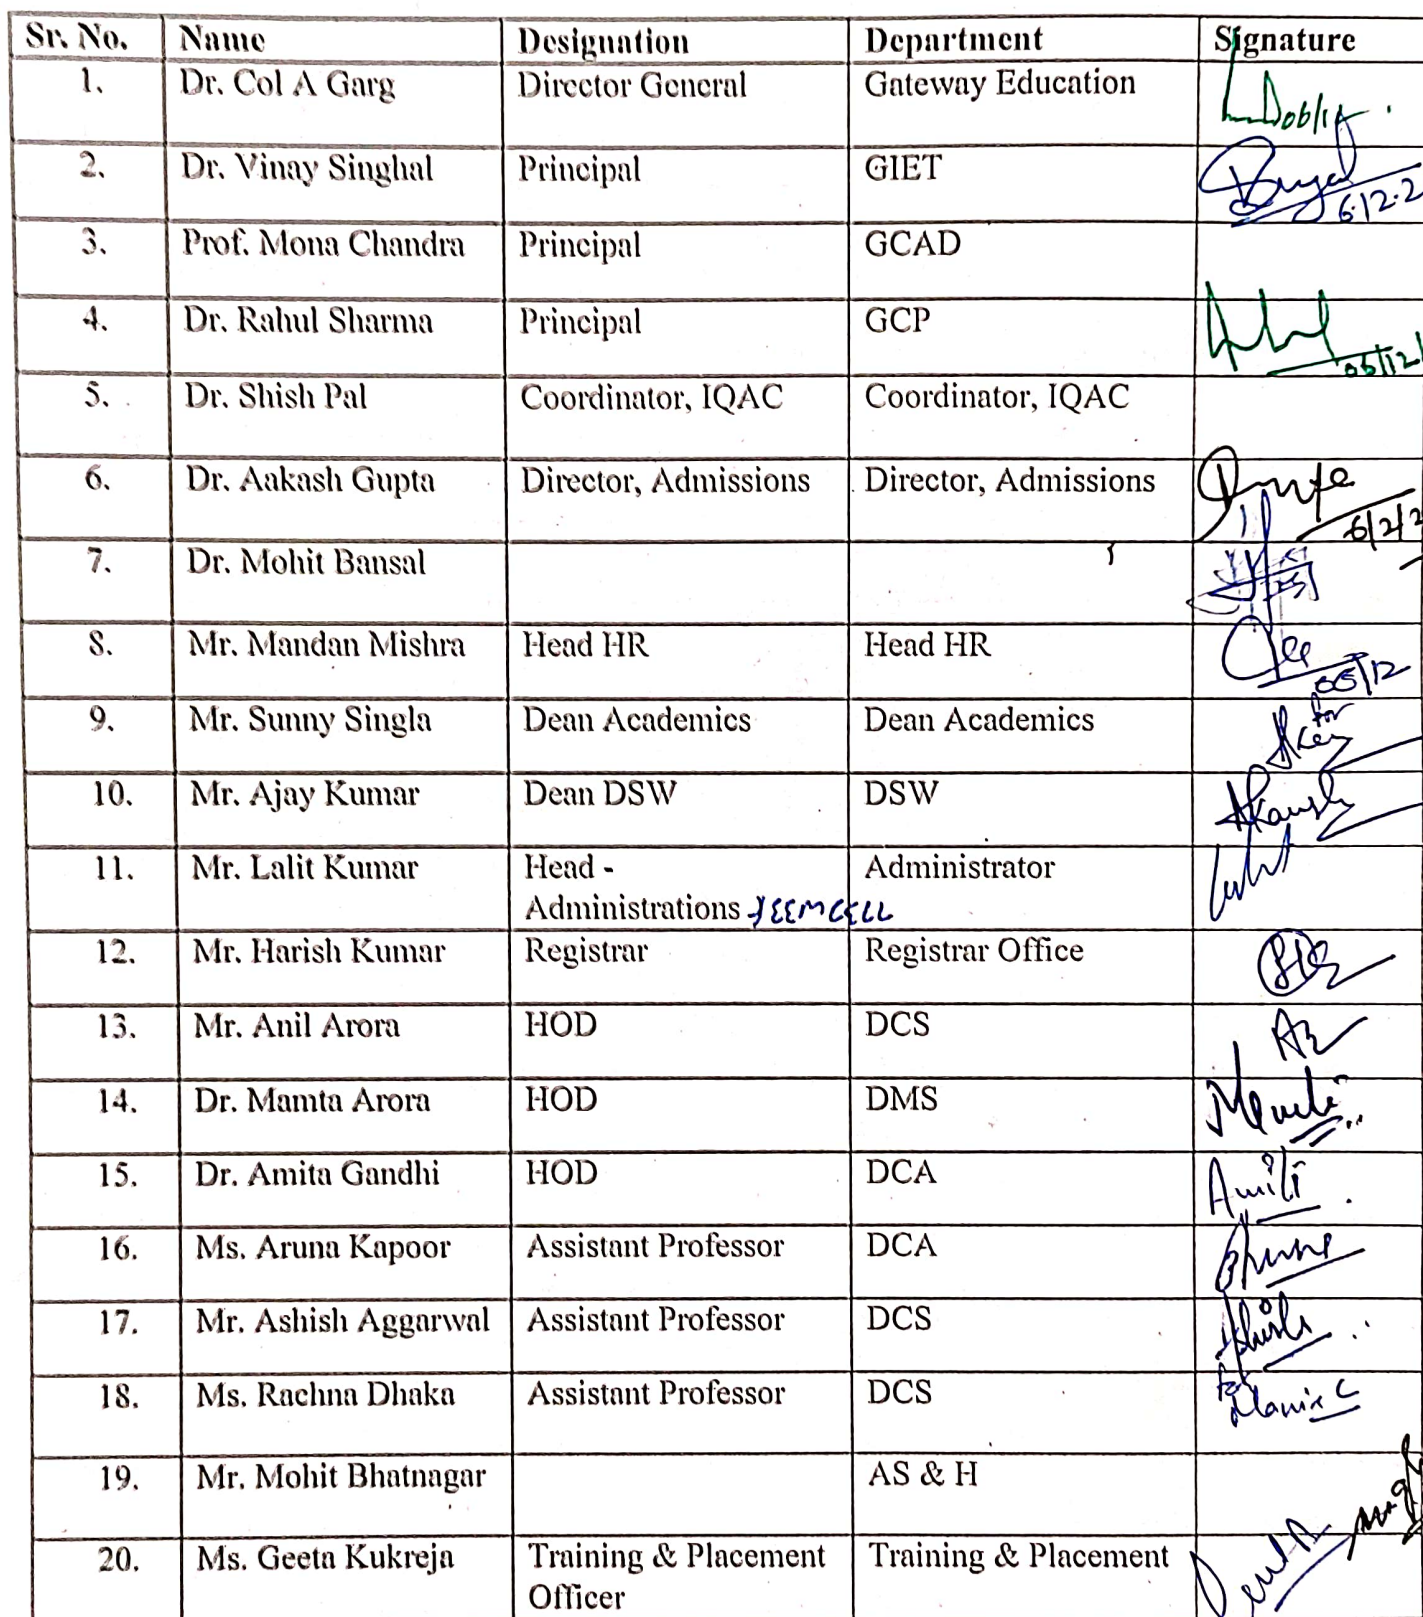 Sr. No. Name Designation Department Signature
1. Dr. Col A Garg Director General Gateway Education
2. Dr. Vinay Singhal Principal GIET
6.12.2
3. Prof. Mona Chandra Principal GCAD
4. Dr. Rahul Sharma Principal GCP
5. Dr. Shish Pal Coordinator, IQAC Coordinator, IQAC
6. Dr. Aakash Gupta Director, Admissions Director, Admissions
7. Dr. Mohit Bansal
8. Mr. Mandan Mishra Head HR Head HR
9. Mr. Sunny Singla Dean Academics Dean Academics
for
10. Mr. Ajay Kumar Dean DSW DSW
11. Mr. Lalit Kumar Head - Administrator
Administrations
12. Mr. Harish Kumar Registrar Registrar Office
13. Mr. Anil Arora HOD DCS
14. Dr. Mamta Arora HOD DMS
15. Dr. Amita Gandhi HOD DCA
16. Ms. Aruna Kapoor Assistant Professor DCA
17. Mr. Ashish Aggarwal Assistant Professor DCS
18. Ms. Rachna Dhaka Assistant Professor DCS
19. Mr. Mohit Bhatnagar AS & H
20. Ms. Geeta Kukreja Training & Placement Training & Placement
Officer